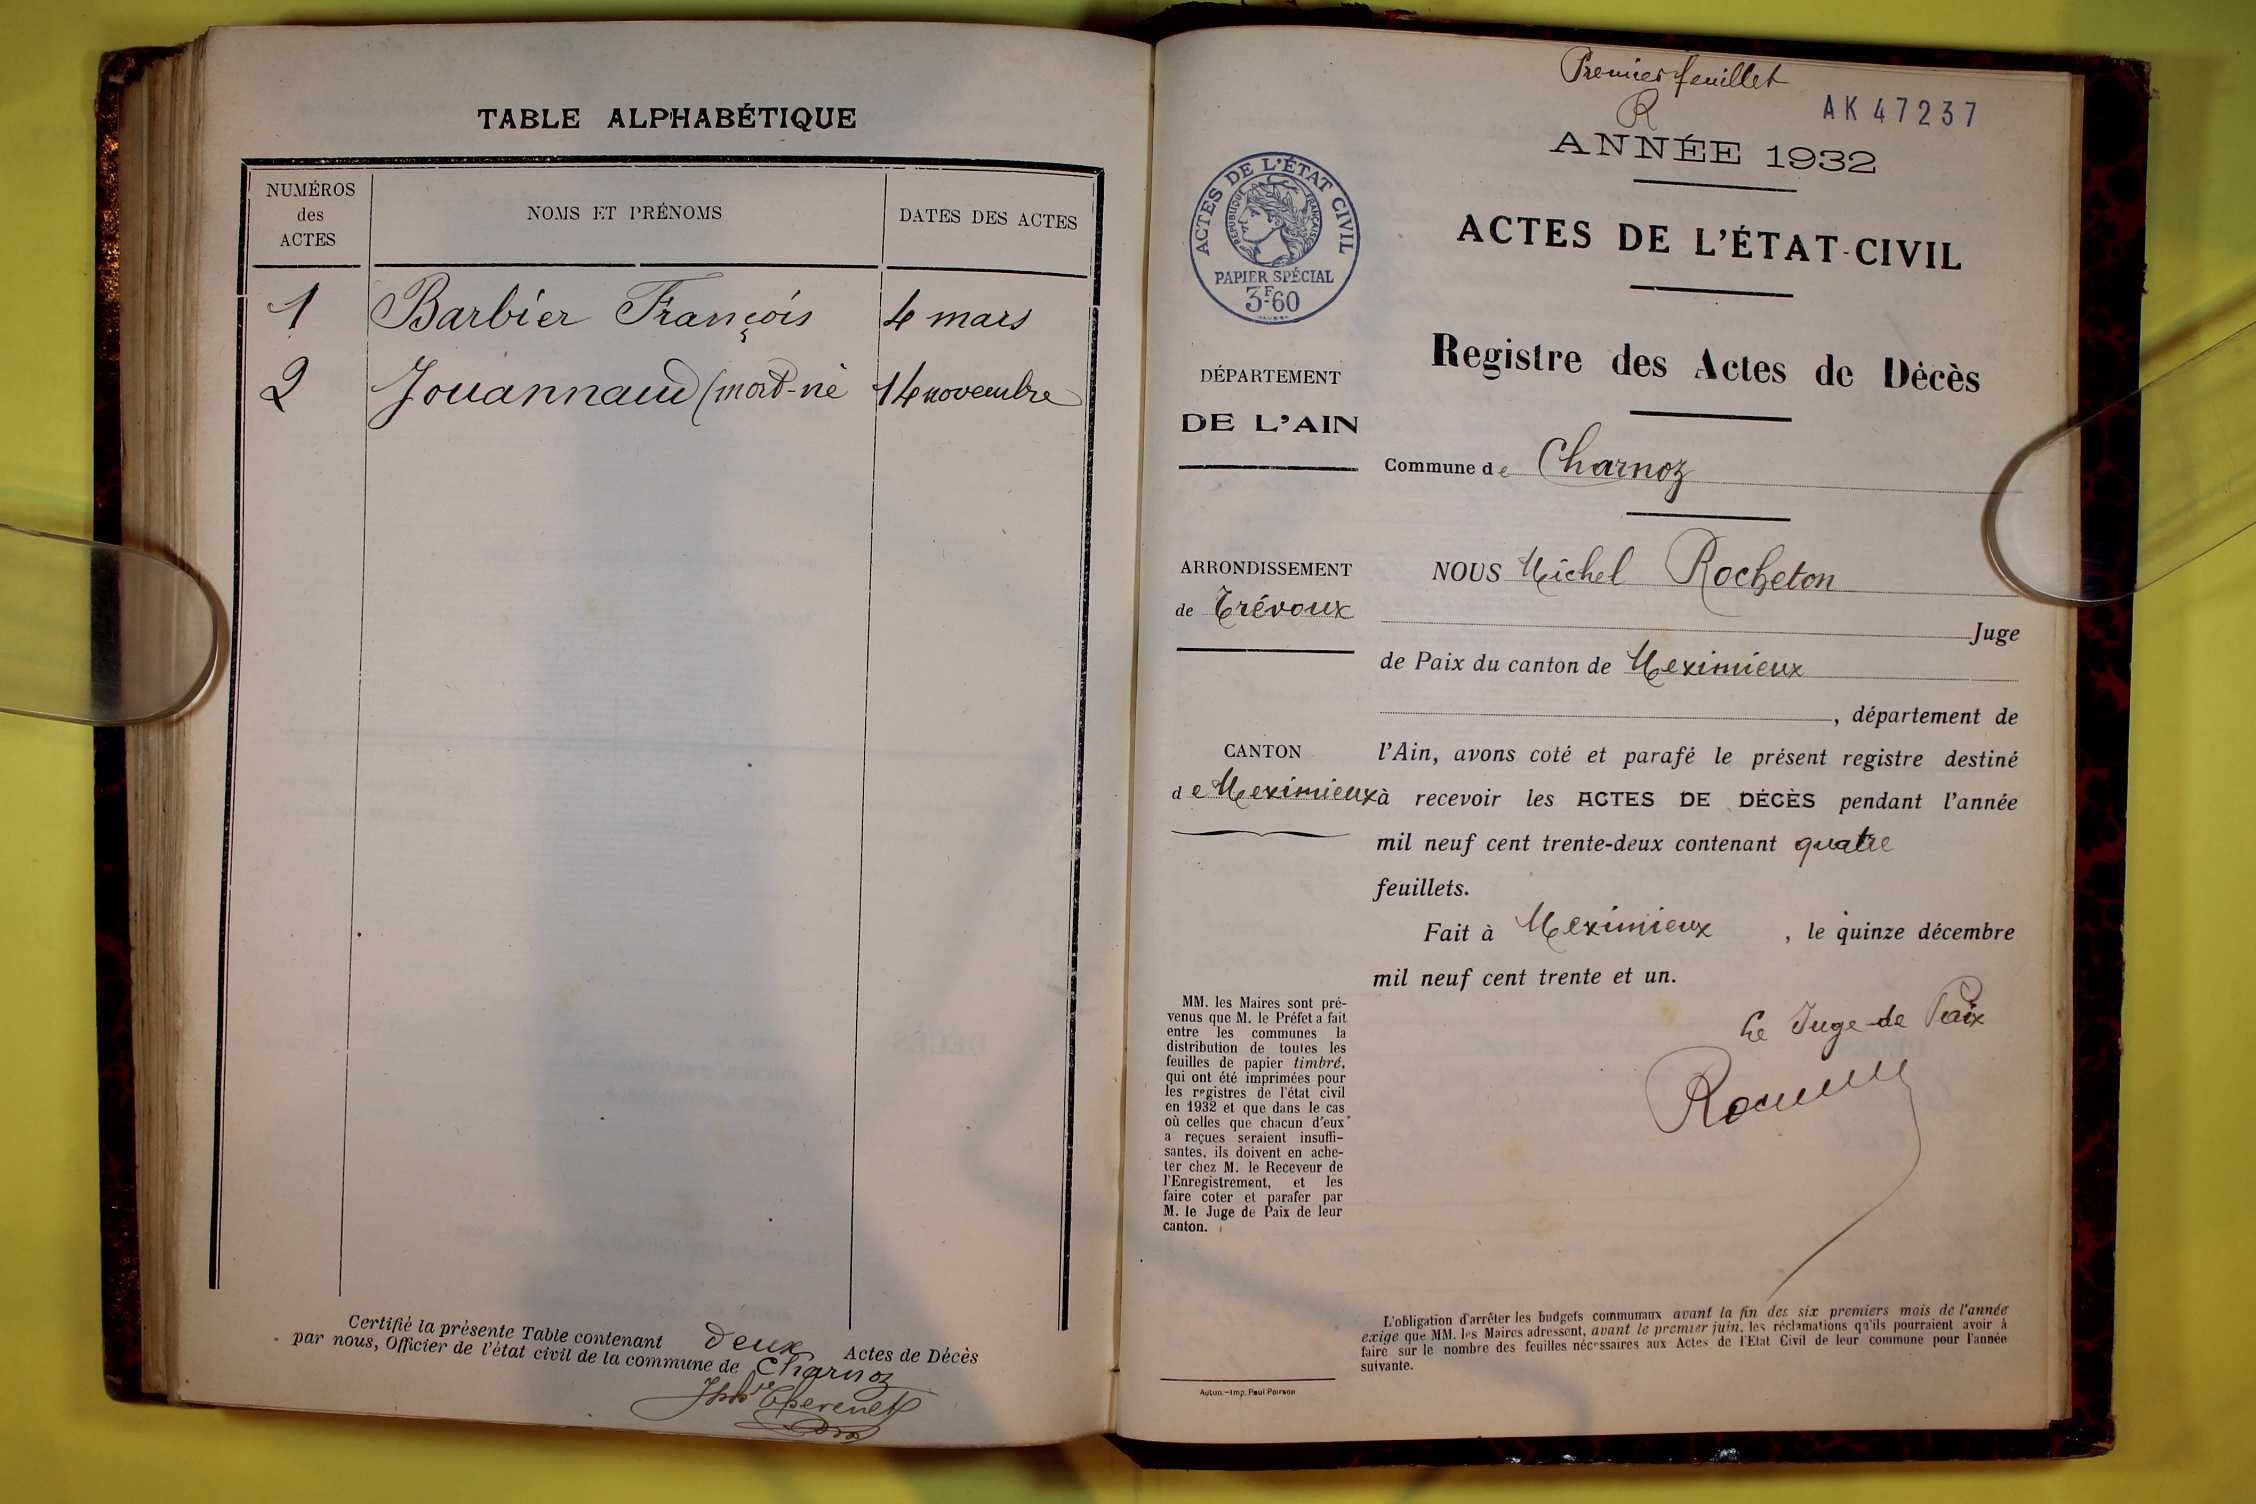 TABLE ALPHABÉTIQUE
NUMÉROS
des
ACTES
NOMS ET PRÉNOMS
DATES DES ACTES
1 Barbier François 4 mars
2 Jouannaud (mort-né 14 novembre
Certifié la présente Table contenant deux Actes de Décès
par nous, Officier de l'état civil de la commune de Charnoz
Thevenet
Premier feuillet
R
AK 47237
ANNÉE 1932
ACTES DE L'ÉTAT CIVIL
RÉPUBLIQUE FRANÇAISE
PAPIER SPÉCIAL
3F.60
ACTES DE L'ÉTAT-CIVIL
Registre des Actes de Décès
DÉPARTEMENT
DE L'AIN
Commune de Charnoz
ARRONDISSEMENT
de Trévoux
NOUS Michel Rocheton
Juge
de Paix du canton de Meximieux
, département de
CANTON
de Meximieux
l'Ain, avons coté et parafé le présent registre destiné
à recevoir les ACTES DE DÉCÈS pendant l'année
mil neuf cent trente-deux contenant quatre
feuillets.
Fait à Meximieux , le quinze décembre
mil neuf cent trente et un.
Le Juge de Paix
MM. les Maires sont pré-
venus que M. le Préfet a fait
entre les communes la
distribution de toutes les
feuilles de papier timbré,
qui ont été imprimées pour
les registres de l'état civil
en 1932 et que dans le cas
où celles que chacun d'eux
a reçues seraient insuffi-
santes, ils doivent en ache-
ter chez M. le Receveur de
l'Enregistrement, et les
faire coter et parafer par
M. le Juge de Paix de leur
canton.
L'obligation d'arrêter les budgets communaux avant la fin des six premiers mois de l'année
exige que MM. les Maires adressent, avant le premier juin, les réclamations qu'ils pourraient avoir à
faire sur le nombre des feuilles nécessaires aux Actes de l'Etat Civil de leur commune pour l'année
suivante.
Autun.-Imp. Paul Poirson